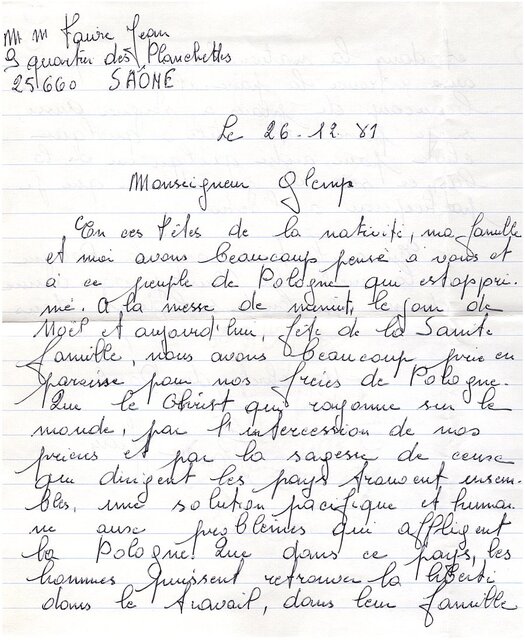 Mr M Faivre Jean
9 quartier des Planchettes
25660 SAÔNE
Le 26-12.81
Monseigneur Glemp
En ces fêtes de la nativité, ma famille
et moi avons beaucoup pensé à vous et
à ce peuple de Pologne qui est oppri-
mé. A la messe de minuit, le jour de
Noël et aujourd'hui, fête de la Sainte
famille, nous avons beaucoup prié en
paroisse pour nos frères de Pologne.
Que le Christ qui rayonne sur le
monde, par l'intercession de nos
prières et par la sagesse de ceux
qui dirigent les pays trouvent ensem-
bles, une solution pacifique et humai-
ne aux problèmes qui affligent
la Pologne. Que dans ce pays, les
hommes puissent retrouver la liberté
dans le travail, dans leur famille